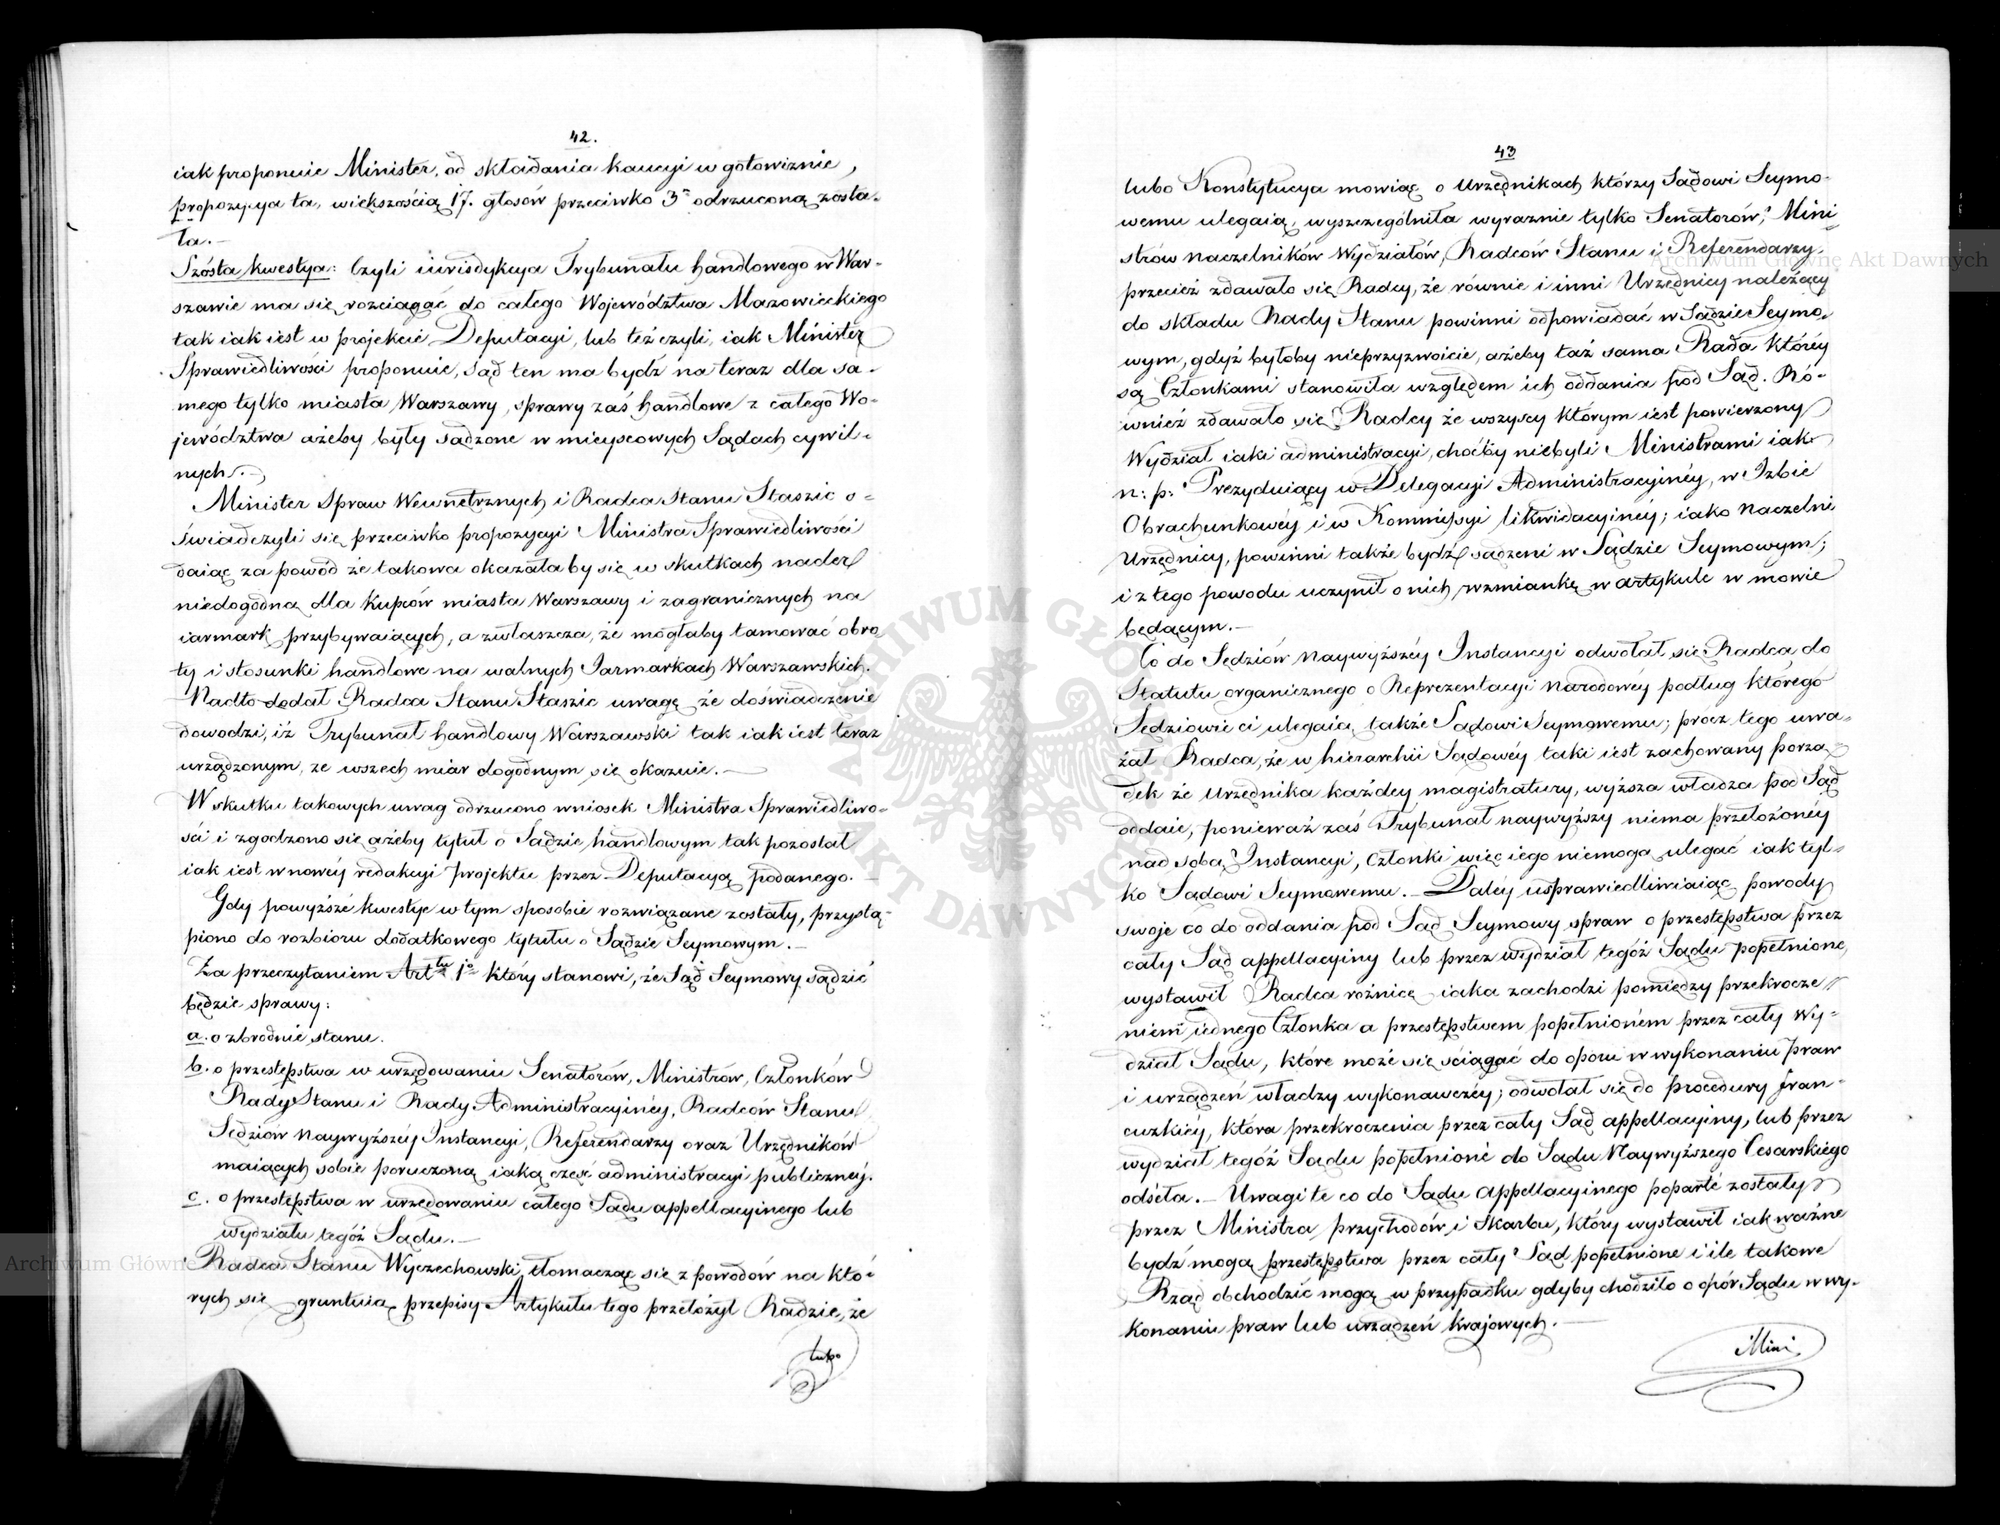 42.
iak proponuie Minister, od składania kaucyi w gotowiznie,
propozycya ta, większością 17. głosów przeciwko 3m odrzuconą zosta-
ła.—
Szósta kwestya: Czyli iurisdykcya Trybunału handlowego w War-
szawie ma się rozciągać do całego Województwa Mazowieckiego
tak iak iest w projekcie Deputacyi, lub też czyli, iak Minister
Sprawiedliwości proponuie, Sąd ten ma bydź na teraz dla sa-
mego tylko miasta Warszawy, sprawy zaś handlowe z całego Wo-
jewództwa ażeby były sądzone w mieyscowych Sądach cywil-
nych.—
Minister Spraw Wewnętrznych i Radca Stanu Staszic o-
świadczyli się przeciwko propozycyi Ministra Sprawiedliwości
daiąc za powód że takowa okazałaby się w skutkach nader
niedogodną dla Kupców miasta Warszawy i zagranicznych na
iarmark przybywaiących, a zwłaszcza, że mogłaby tamować obro
ty i stosunki handlowe na walnych Jarmarkach Warszawskich.
Nadto dodał Radca Stanu Staszic uwagę że doświadczenie
dowodzi, iż Trybunał handlowy Warszawski tak iak iest teraz
urządzonym, ze wszech miar dogodnym się okazuie.—
W skutku takowych uwag odrzucono wniosek Ministra Sprawiedliwo-
ści i zgodzono się ażeby tytuł o Sądzie handlowym tak pozostał
iak iest w nowéy redakcyi projektu przez Deputacyą podanego.—
Gdy powyższe kwestye w tym sposobie rozwiązane zostały, przystą-
piono do rozbioru dodatkowego tytułu o Sądzie Seymowym.—
Za przeczytaniem Arttu 1o który stanowi, że Sąd Seymowy sądzić
będzie sprawy:
a. o zbrodnie stanu.
b. o przestępstwa w urzędowaniu Senatorów, Ministrów, Członków
Rady Stanu i Rady Administracyinéy, Radców Stanu
Sędziów naywyższéy Instancyi, Referendarzy oraz Urzędników
maiących sobie poruczoną iaką część administracyi publicznej.
c. o przestępstwa w urzędowaniu całego Sądu appellacyinego lub
wydziału tegóż Sądu.—
Radca Stanu Wyczechowski, tłomacząc się z powodów na któ-
rych się gruntuią przepisy Artykułu tego przełożył Radzie, że
lubo
43
lubo Konstytucya mowiąc o Urzędnikach którzy Sądowi Seymo-
wemu ulegaią, wyszczególniła wyraznie tylko Senatorów, Mini
strów naczelników Wydziałów, Radców Stanu i Referendarzy,
przecież zdawało się Radcy, że równie i inni Urzędnicy należący
do składu Rady Stanu powinni odpowiadać w Sądzie Seymo-
wym, gdyż byłoby nieprzyzwoicie, ażeby taż sama Rada któréy
są Członkami stanowiła względem ich oddania pod Sąd. Ró-
wnież zdawało się Radcy że wszyscy którym iest powierzony
Wydział iaki administracyi, choćby niebyli Ministrami iak
n: p: Prezyduiący w Delegacyi Administracyinéy, w Izbie
Obrachunkowéy i w Kommissyi likwidacyinéy; iako naczelni
Urzędnicy, powinni także bydź sądzeni w Sądzie Seymowym;
i z tego powodu uczynił o nich wzmiankę w artykule w mowie
będącym.—
Co do Sędziów naywyższéy Instancyi odwołał się Radca do
Statutu organicznego o Reprezentacyi Narodowéy podług którego
Sędziowie ci ulegaią także Sądowi Seymowemu; prócz tego uwa-
żał Radca, że w hierarchii Sądowéy taki iest zachowany porzą
dek że urzędnika każdey magistratury, wyższa władza pod Sąd
oddaie, ponieważ zaś Trybunał naywyższy niema przełożonéy
nad sobą Instancyi, Członki więc iego niemogą ulegać iak tyl-
ko Sądowi Seymowemu.— Daléy usprawiedliwiaiąc powody
swoje co do oddania pod Sąd Seymowy spraw o przestępstwa przez
cały Sąd appellacyiny lub przez wydział tegóż Sądu popełnione,
wystawił Radca rożnicę iaka zachodzi pomiędzy przekrocze
niem iednego Członka a przestępstwem popełnioném przez cały wy-
dział Sądu, które może się ściągać do oporu w wykonaniu praw
i urządzeń władzy wykonawczéy; odwołał się do procedury fran-
cuzkiéy, która przekroczenia przez cały Sąd appellacyiny, lub przez
wydział tegóż Sądu popełnioné do Sądu Naywyższego Cesarskiego
odséła.— Uwagi te co do Sądu appellacyinego poparté zostały
przez Ministra przychodów i Skarbu, który wystawił iak ważne
bydź mogą przestępstwa przez cały Sąd popełnione i ile takowe
Rząd obchodzić mogą w przypadku gdyby chodziło o opór Sądu w wy-
konaniu praw lub urządzeń krajowych.—
Mini
ARCHIWUM GŁÓWNE AKT DAWNYCH
Archiwum Główne Akt Dawnych
Archiwum Główne Akt Dawnych